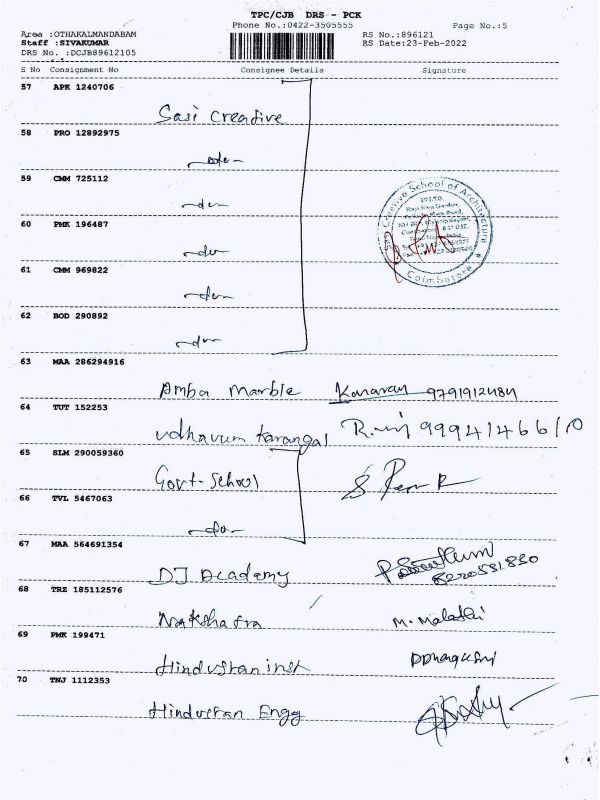 TPC/CJB DRS - PCK
Phone No.:0422-3505555 Page No.:5
Area :OTHAKALMANDABAM RS No.:896121
Staff :SIVAKUMAR RS Date:23-Feb-2022
DRS No. :DCJB89612105
S No Consignment No Consignee Details Signature
57 APK 1240706
Sasi Creative
58 PRO 12892975
-do-
59 CMM 725112
-do-
60 PMK 196487
-do-
61 CMM 969822
-do-
62 BOD 290892
-do-
Sasi Creative School of Architecture
Coimbatore
63 MAA 286294916
Amba Marble Kanaran 9791912484
64 TUT 152253
Udhavum Karangal 9994146610
65 SLM 290059360
Govt-School
66 TVL 5467063
-do-
67 MAA 564691354
DJ Academy
68 TRZ 185112576
Nakshatra M. Malathi
69 PMK 199471
Hindustan inst
70 TNJ 1112353
Hindustan Engg